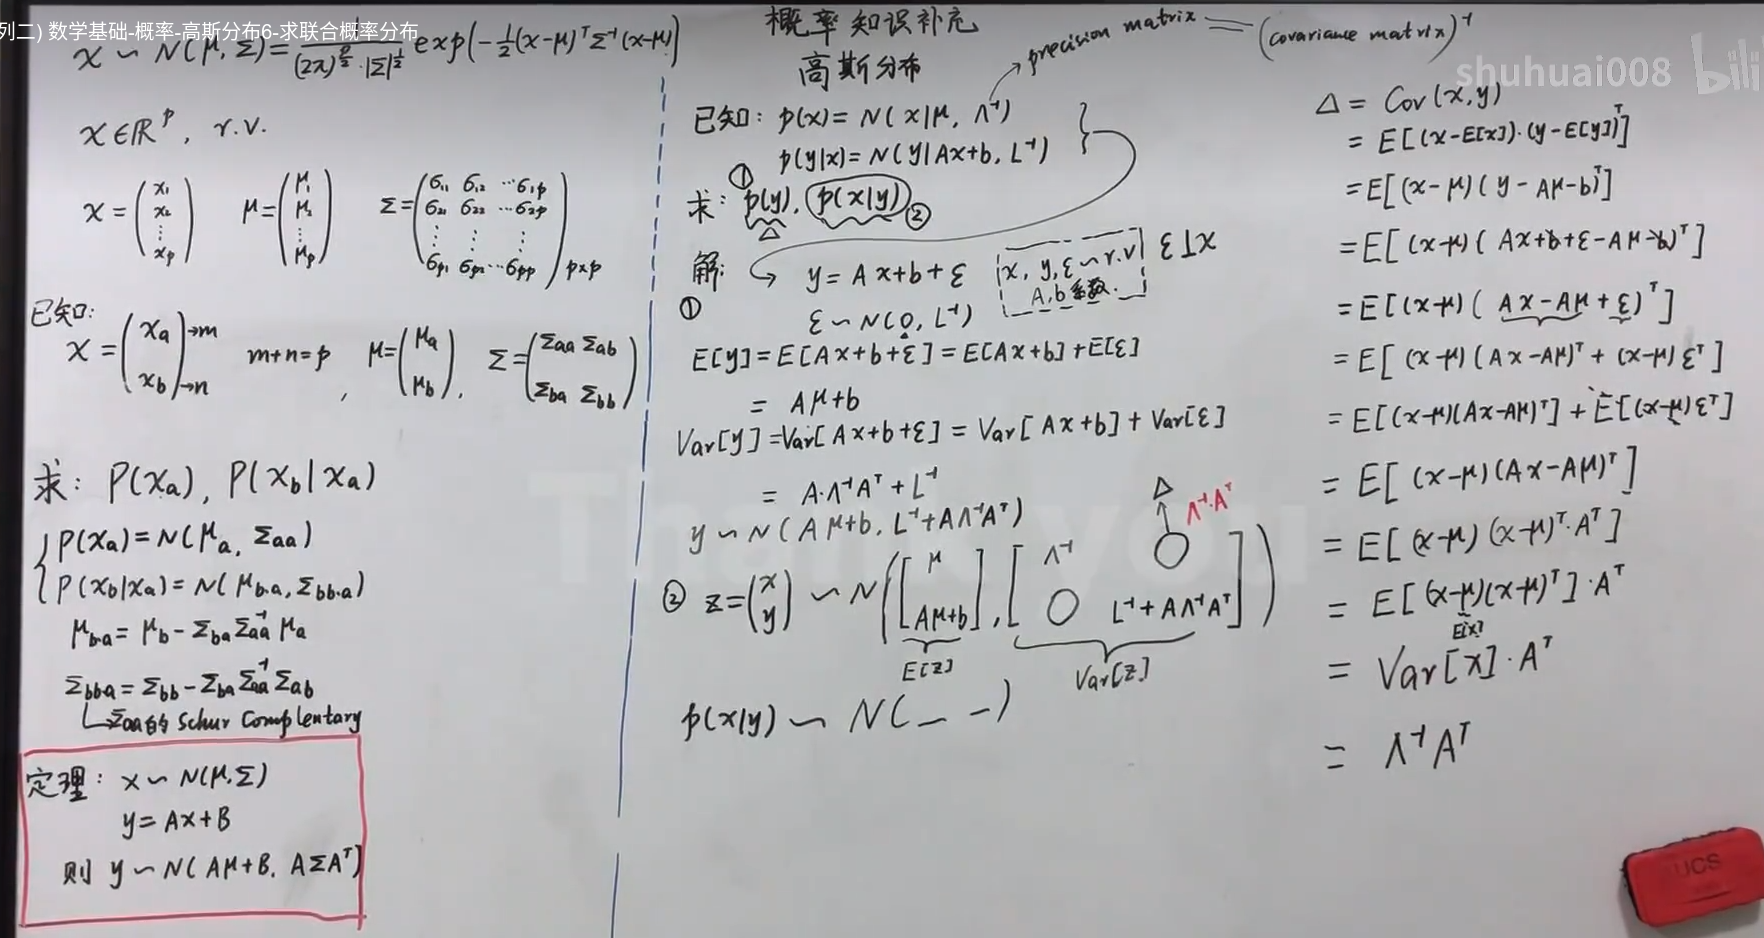 列二) 数学基础-概率-高斯分布6-求联合概率分布
x ~ N(μ, Σ) = 1/((2π)^{p/2} · |Σ|^{1/2}) exp(-½(x-μ)ᵀ Σ⁻¹ (x-μ))
x ∈ ℝᵖ, r.v.
x = (x₁ x₂ ⋮ xp) μ = (μ₁ μ₂ ⋮ μp) Σ = (σ₁₁ σ₁₂ ⋯ σ₁p
σ₂₁ σ₂₂ ⋯ σ₂p
⋮ ⋮ ⋮
σp₁ σp₂ ⋯ σpp) p×p
已知:
x = (xa → m
xb → n) m+n=p, μ = (μa μb), Σ = (Σaa Σab
Σba Σbb)
求: P(xa), P(xb|xa)
P(xa) = N(μa, Σaa)
P(xb|xa) = N(μb·a, Σbb·a)
μb·a = μb - Σba Σaa⁻¹ μa
Σbb·a = Σbb - Σba Σaa⁻¹ Σab
↳ Σaa的 Schur Complentary
定理: x ~ N(μ, Σ)
y = Ax+B
则 y ~ N(Aμ+B, AΣAᵀ)
概率知识补充
高斯分布
precision matrix = (covariance matrix)⁻¹
已知: p(x) = N(x|μ, Λ⁻¹)
p(y|x) = N(y|Ax+b, L⁻¹)
求: ① p(y), p(x|y) ②
Δ
解: y = Ax+b+ε
x, y, ε ~ r.v
A, b 系数.
ε⊥x
①
ε ~ N(0, L⁻¹)
E[y] = E[Ax+b+ε] = E[Ax+b] + E[ε]
= Aμ+b
Var[y] = Var[Ax+b+ε] = Var[Ax+b] + Var[ε]
= A·Λ⁻¹Aᵀ + L⁻¹
y ~ N(Aμ+b, L⁻¹+AΛ⁻¹Aᵀ)
Δ Λ⁻¹·Aᵀ
② z = (x y) ~ N([μ
Aμ+b], [Λ⁻¹ ○
○ L⁻¹+AΛ⁻¹Aᵀ])
E[z] Var[z]
p(x|y) ~ N(_ _)
shuhuai008 bili
Δ = Cov(x,y)
= E[(x-E[x])·(y-E[y])ᵀ]
= E[(x-μ)(y-Aμ-b)ᵀ]
= E[(x-μ)(Ax+b+ε-Aμ-b)ᵀ]
= E[(x-μ)(Ax-Aμ+ε)ᵀ]
= E[(x-μ)(Ax-Aμ)ᵀ + (x-μ)εᵀ]
= E[(x-μ)(Ax-Aμ)ᵀ] + E[(x-μ)εᵀ]
= E[(x-μ)(Ax-Aμ)ᵀ]
= E[(x-μ)(x-μ)ᵀ·Aᵀ]
= E[(x-μ)(x-μ)ᵀ]·Aᵀ
E[x]
= Var[x]·Aᵀ
= Λ⁻¹Aᵀ
Thank you
UCS